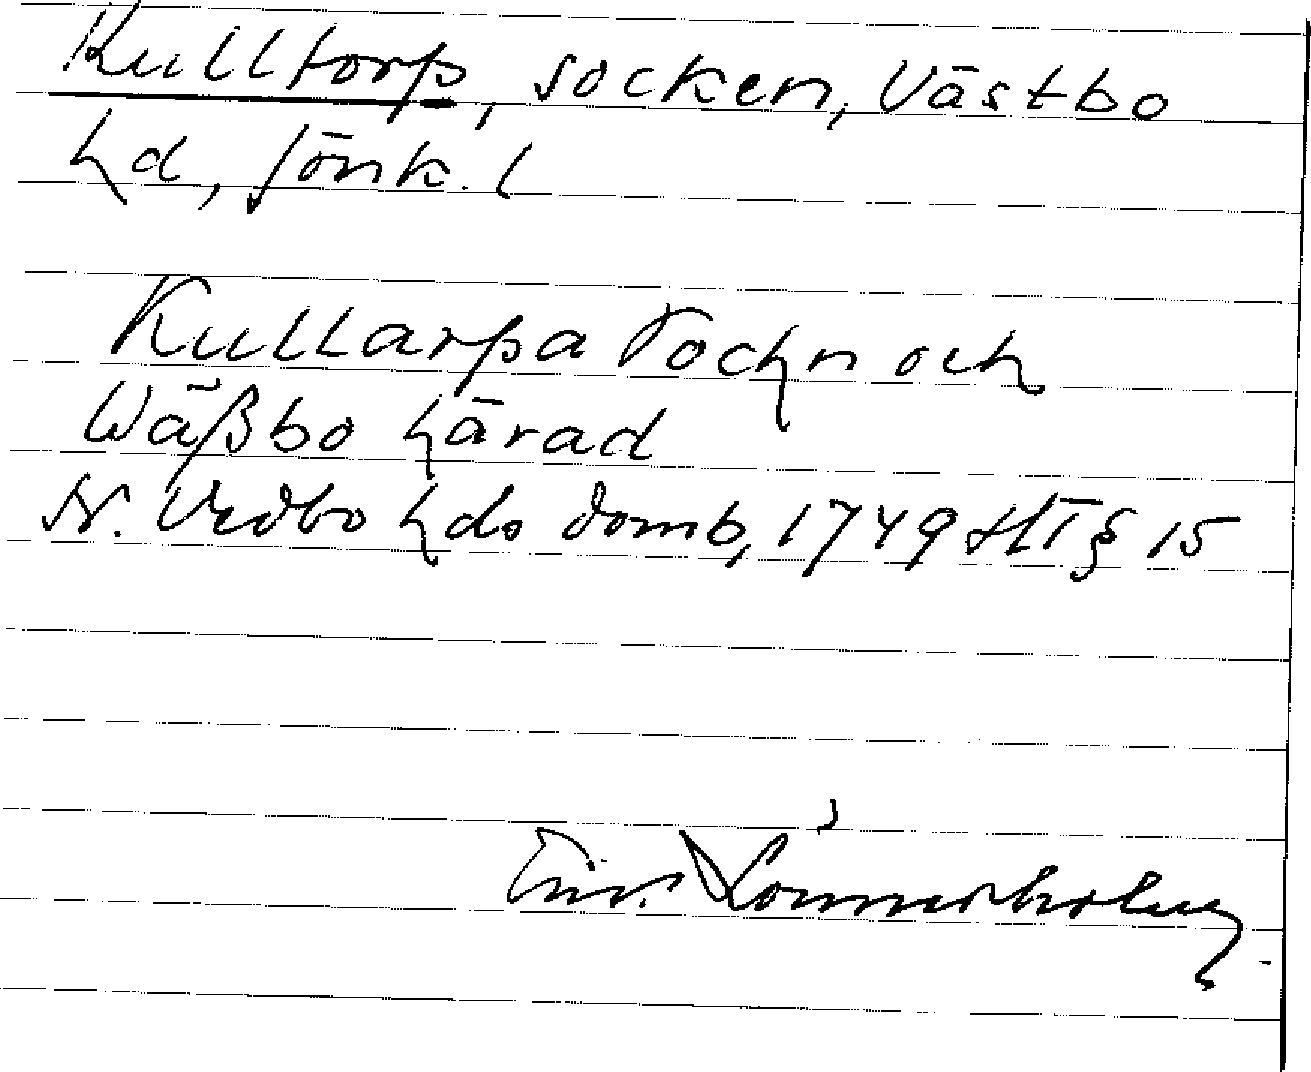 Kulltorp, socken, Västbo
hd, Jönk. l
Kullarpa Sochn och
Wäßbo härad
N. Vedbo hds domb, 1749 HT § 15